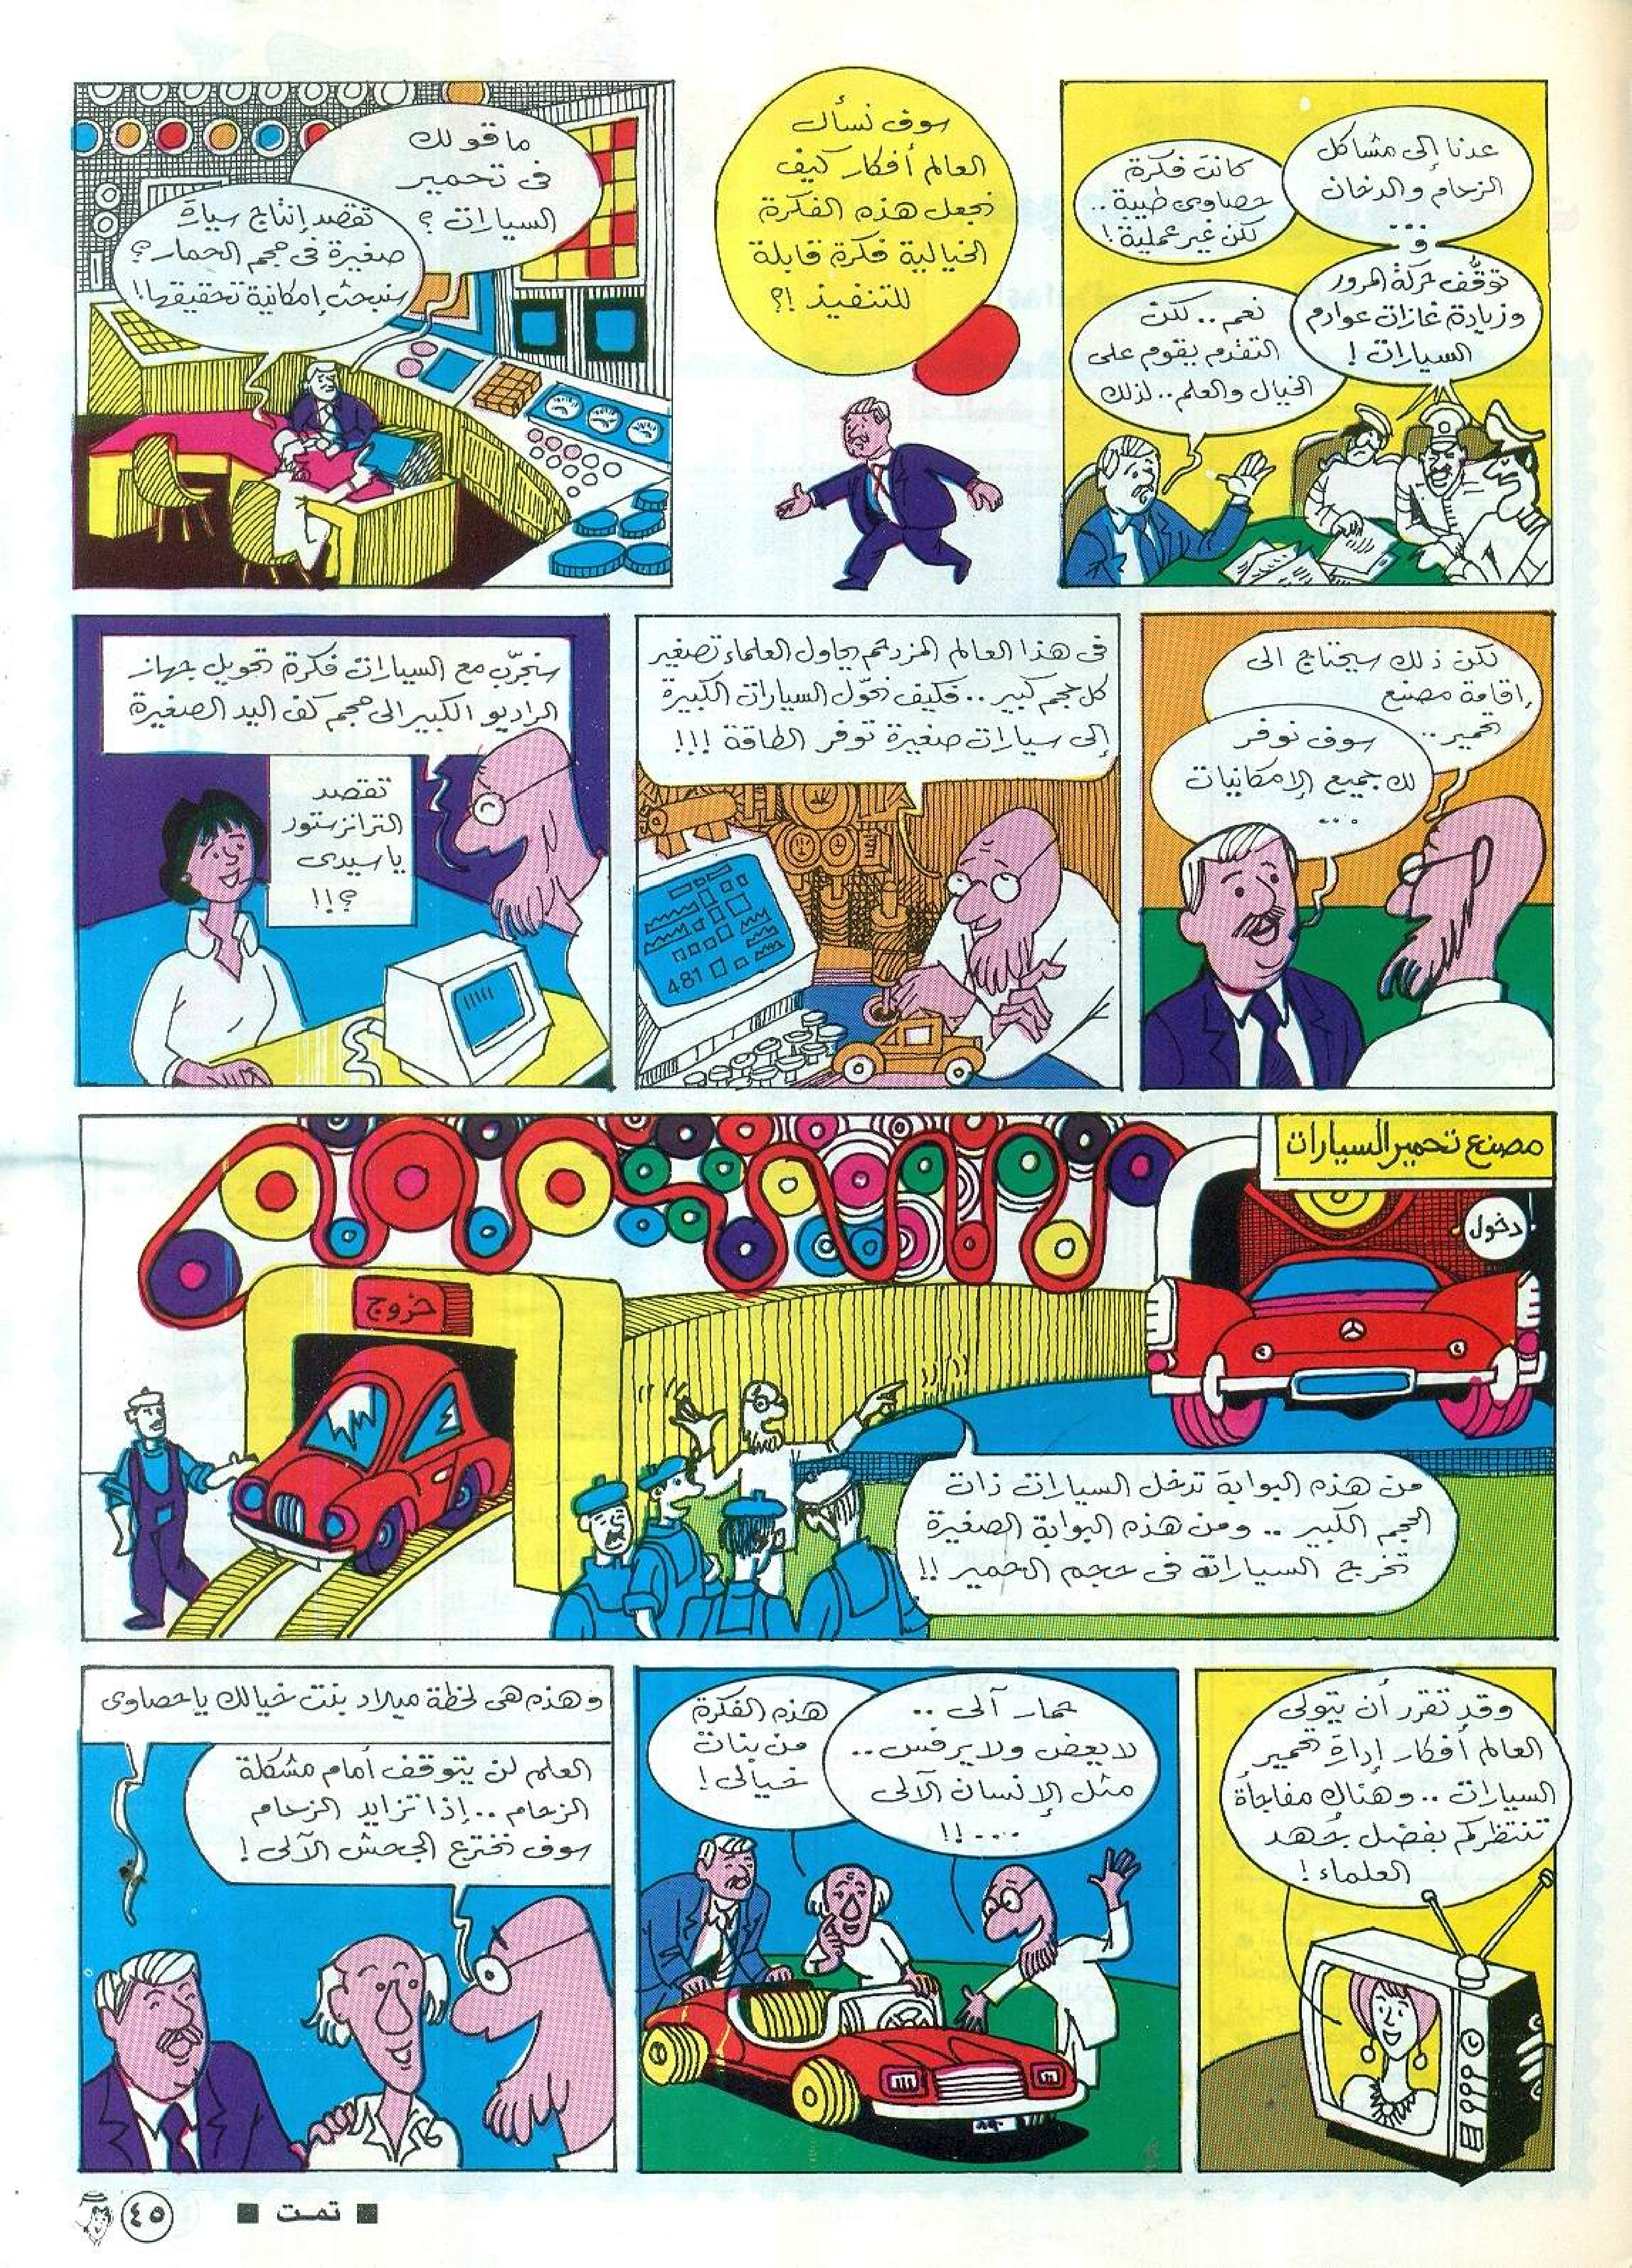 عدنا إلى مشاكل
الزحام والدخان
و...
توقّف حركة المرور
وزيادة غازات عوادم
السيارات !
كانت فكرة
حصاوى طيبة..
لكن غير عملية !
نعم.. لكن
التقدم يقوم على
الخيال والعلم.. لذلك
سوف نسأل
العالم أفكار كيف
نجعل هذه الفكرة
الخيالية فكرة قابلة
للتنفيذ ؟!
ما قولك
فى تحمير
السيارات ؟
تقصد إنتاج سيارة
صغيرة فى حجم الحمار ؟
سنبحث إمكانية تحقيقها !
لكن ذلك سيحتاج الى
إقامة مصنع
تحمير..
سوف نوفر
لك جميع الإمكانيات
....
فى هذا العالم المزدحم يحاول العلماء تصغير
كل حجم كبير .. فكيف نحوّل السيارات الكبيرة
إلى سيارات صغيرة توفر الطاقة !!!
481
سنجرّب مع السيارات فكرة تحويل جهاز
الراديو الكبير الى حجم كف اليد الصغيرة
تقصد
الترانزستور
يا سيدى
؟!!
مصنع تحمير السيارات
دخول
خروج
من هذه البوابة تدخل السيارات ذات
الحجم الكبير .. ومن هذه البوابة الصغيرة
تخرج السيارات فى حجم الحمير !!
وقد تقرر أن يتولى
العالم أفكار إدارة تحمير
السيارات .. وهناك مفاجأة
تنتظركم بفضل جهد
العلماء !
حمار آلى ..
لا يعض ولا يرفس ..
مثل الإنسان الآلى
....!!
هذه الفكرة
من بنات
خيالى !
وهذه هى لحظة ميلاد بنت خيالك يا حصاوى
العلم لن يتوقف أمام مشكلة
الزحام .. إذا تزايد الزحام
سوف نخترع الجحش الآلى !
■ تمت ■
٤٥